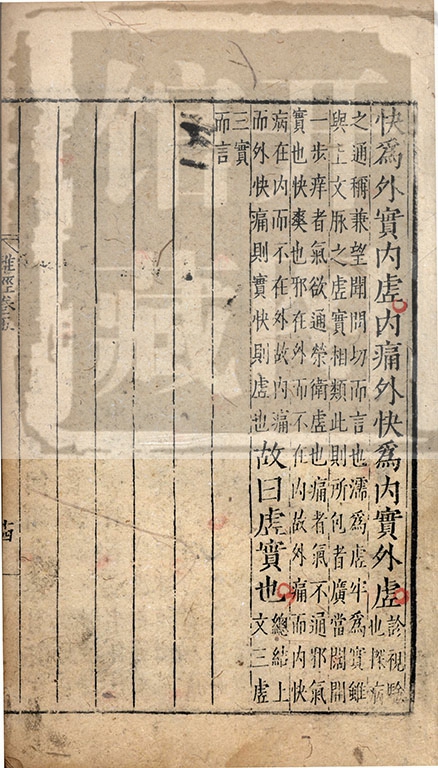 快為外實内虛内痛外快為内實外虛診視驗
也探病
之通稱兼望聞問切而言也濡為虛牢為實雖
與上文脉之虛實相類此則所包者廣當闊開
一步痒者氣欲通榮衛虛也痛者氣不通邪氣
實也快爽也邪在外而不在内故外痛而内快
病在内而不在外故内痛
而外快痛則實快則虛也故曰虛實也總結上
文三虛
三實
而言
難經卷五
十四